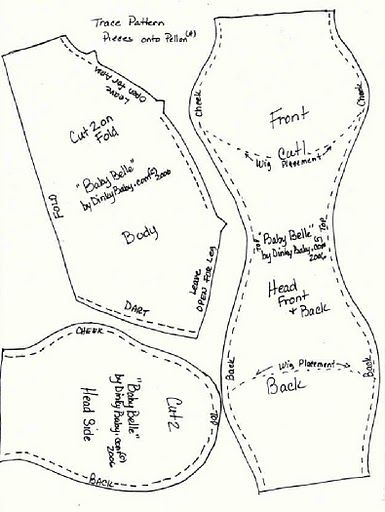 Trace Pattern
Pieces onto Pellon(R)
Leave
Open for Arm
Cut 2 on
Fold
"Baby Belle"
by DinkyBaby.com(c)
2006
FOLD
Body
Leave
OPEN FOR LEG
DART
CHEEK
Cut 2
"Baby Belle"
by DinkyBaby.com(c)
2006
Head Side
TOP
BACK
Cheek
Cheek
Front
Cut 1
Wig Placement
TOP
TOP
"Baby Belle"
by DinkyBaby.com
2006
Head
Front
+ Back
Wig Placement
Back
Back
Back